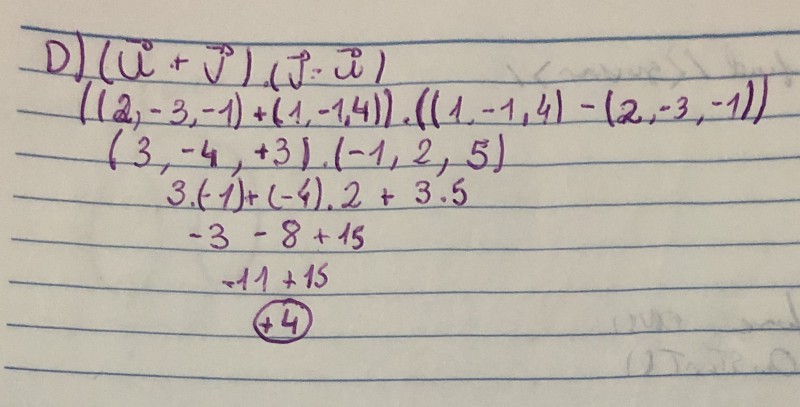 D) (u⃗ + v⃗) . (v⃗ - u⃗)
((2, -3, -1) + (1, -1, 4)) . ((1, -1, 4) - (2, -3, -1))
(3, -4, +3) . (-1, 2, 5)
3.(-1) + (-4).2 + 3.5
-3 - 8 + 15
-11 + 15
+4